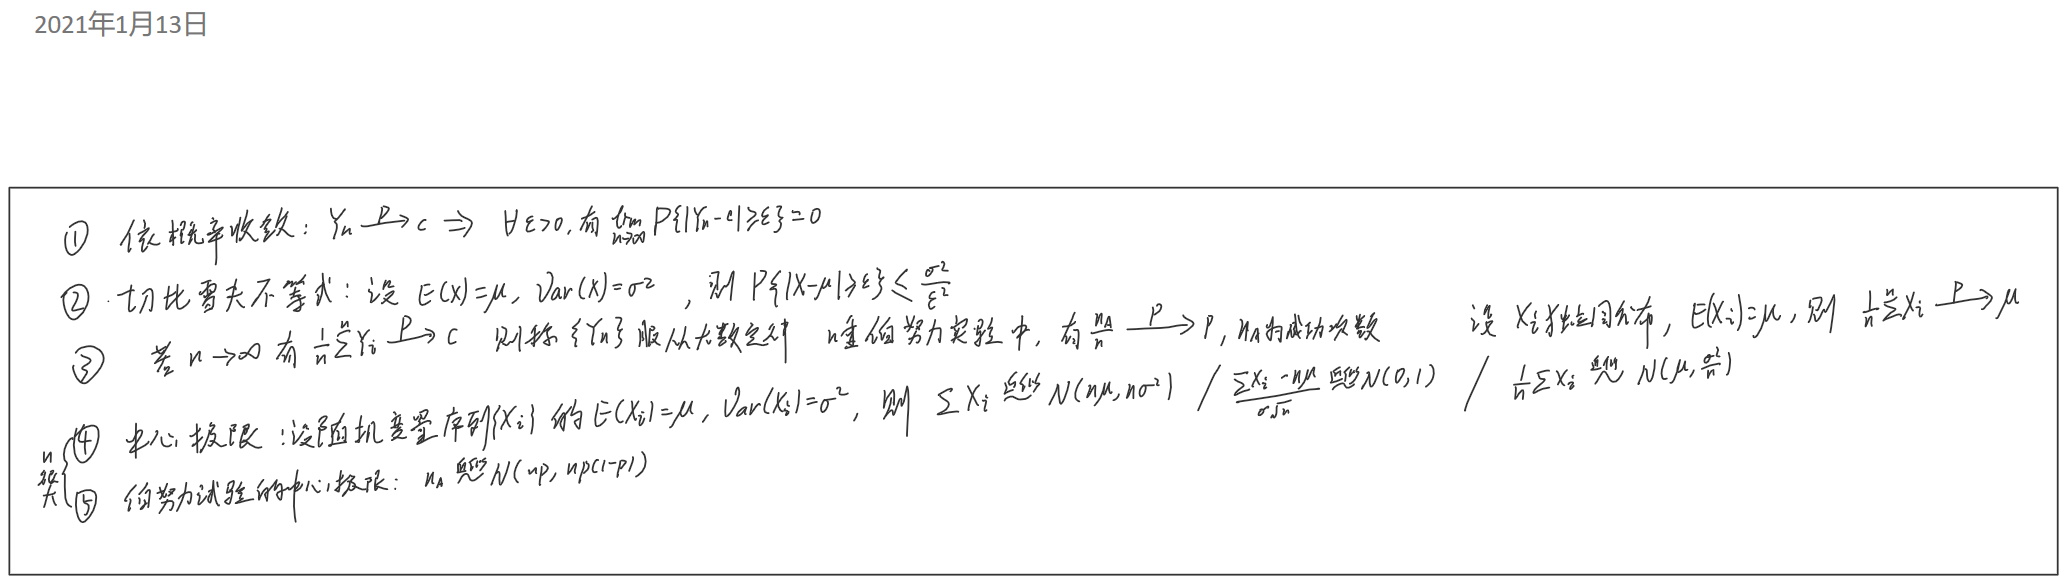 2021年1月13日
① 依概率收敛: Yₙ —P→ c ⇒ ∀ε>0,有 lim_{n→∞} P{|Yₙ-c|≥ε}=0
② 切比雪夫不等式: 设 E(X)=μ, Var(X)=σ² ,则 P{|X-μ|≥ε}≤σ²/ε²
③ 若 n→∞ 有 1/n ∑ⁿYᵢ —P→ c 则称{Yₙ}服从大数定律 n重伯努力实验中,有 n_A/n —P→ P, n_A为成功次数 设 Xᵢ独立同分布, E(Xᵢ)=μ,则 1/n ∑ⁿXᵢ —P→ μ
④ 中心极限:设随机变量序列{Xᵢ}的E(Xᵢ)=μ, Var(Xᵢ)=σ², 则 ∑Xᵢ 近似~ N(nμ,nσ²) / (∑Xᵢ-nμ)/(σ√n) 近似~ N(0,1) / 1/n ∑Xᵢ 近似~ N(μ,σ²/n)
n很大{
⑤ 伯努力试验的中心极限: n_A 近似~ N(np, np(1-p))